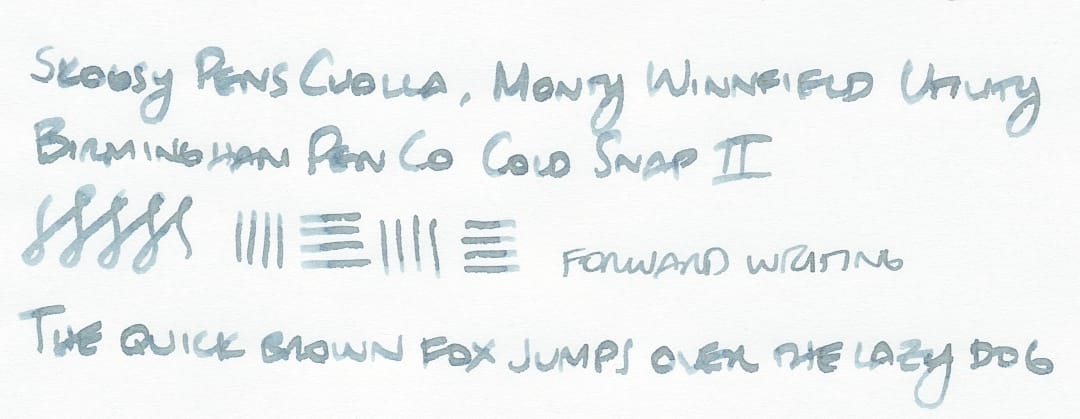 Skogsy Pens Cholla, Monty Winnfield Utility
Birmingham Pen Co Cold Snap II
Forward Writing
The quick brown fox jumps over the lazy dog